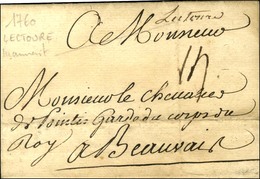 1760
LECTOURE
manuscrit
Lectoure
A Monsieur
Monsieur le chevalier
de Pointis garde du corps du
Roy
a Beauvais